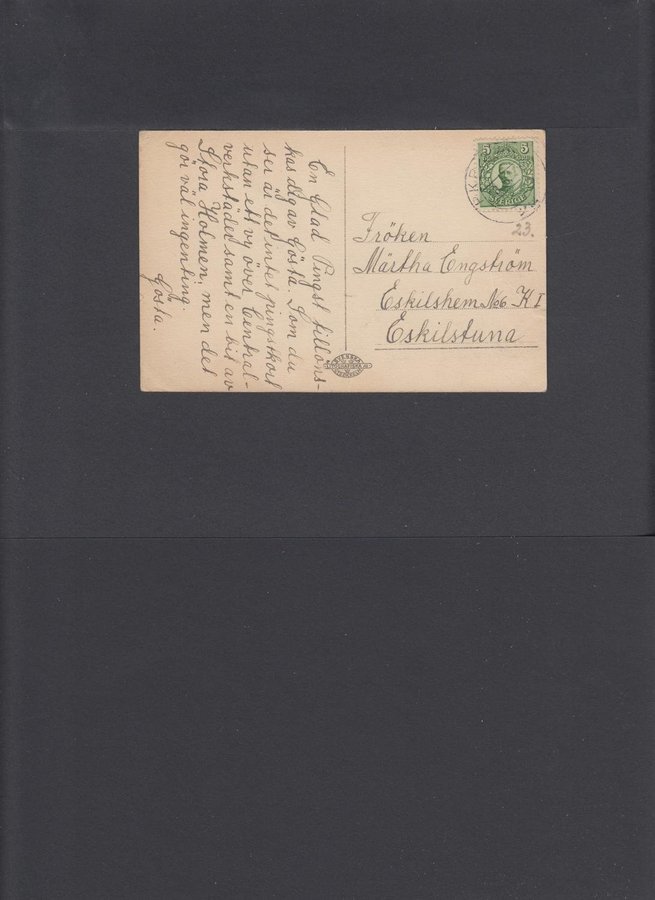 En Glad Pingst tillöns-
kas dig av Gösta. Som du
ser är det intet pingstkort
utan ett vy över Central-
verkstäder samt en bit av
Stora Holmen; men det
gör väl ingenting.
Gösta.
5 5
SVERIGE
23.
Fröken
Märtha Engström
Eskilshem No6 K I
Eskilstuna
SVENSKA